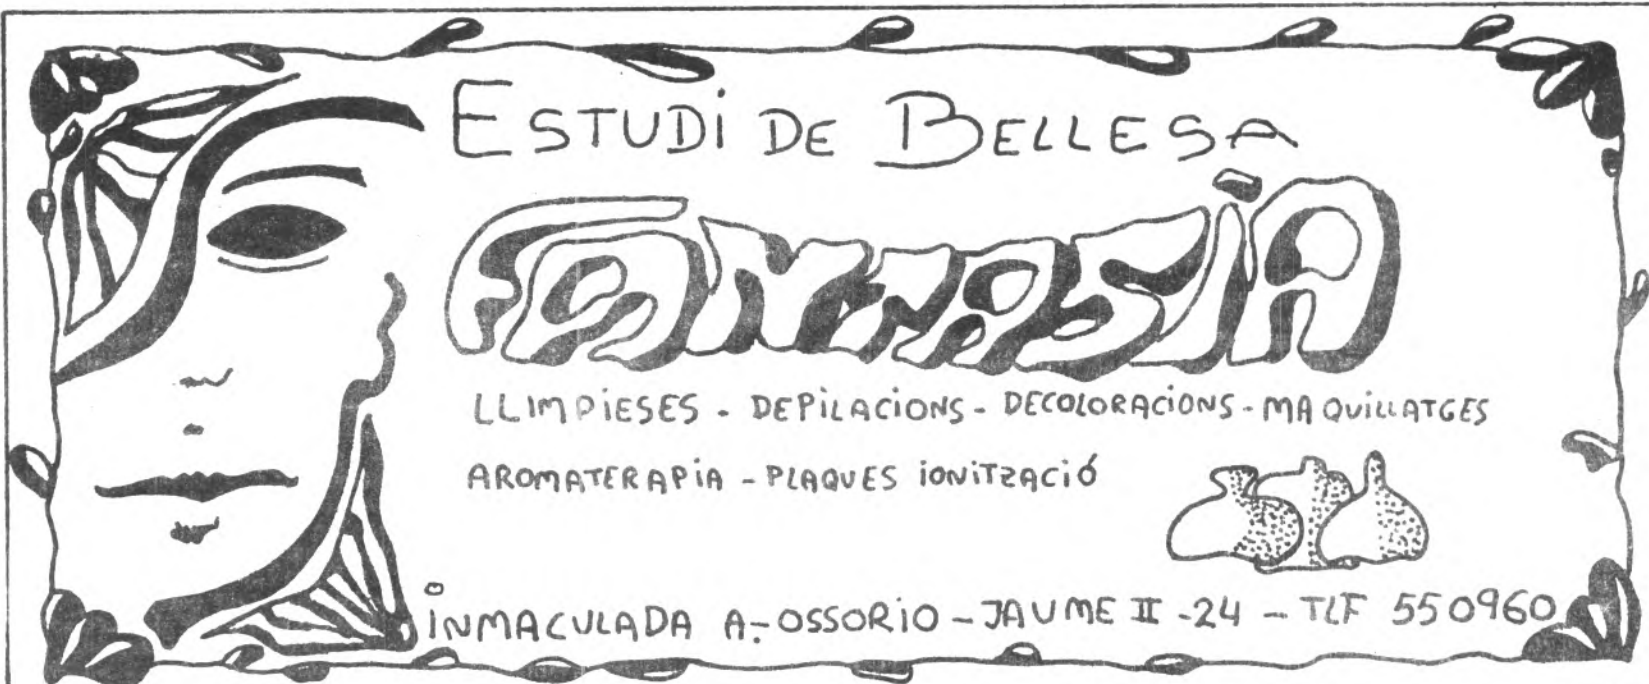 ESTUDI DE BELLESA
FANTASIA
LLIMPIESES - DEPILACIONS - DECOLORACIONS - MAQUILLATGES
AROMATERAPIA - PLAQUES IONITZACIÓ
INMACULADA A.-OSSORIO - JAUME II - 24 - TLF 550960